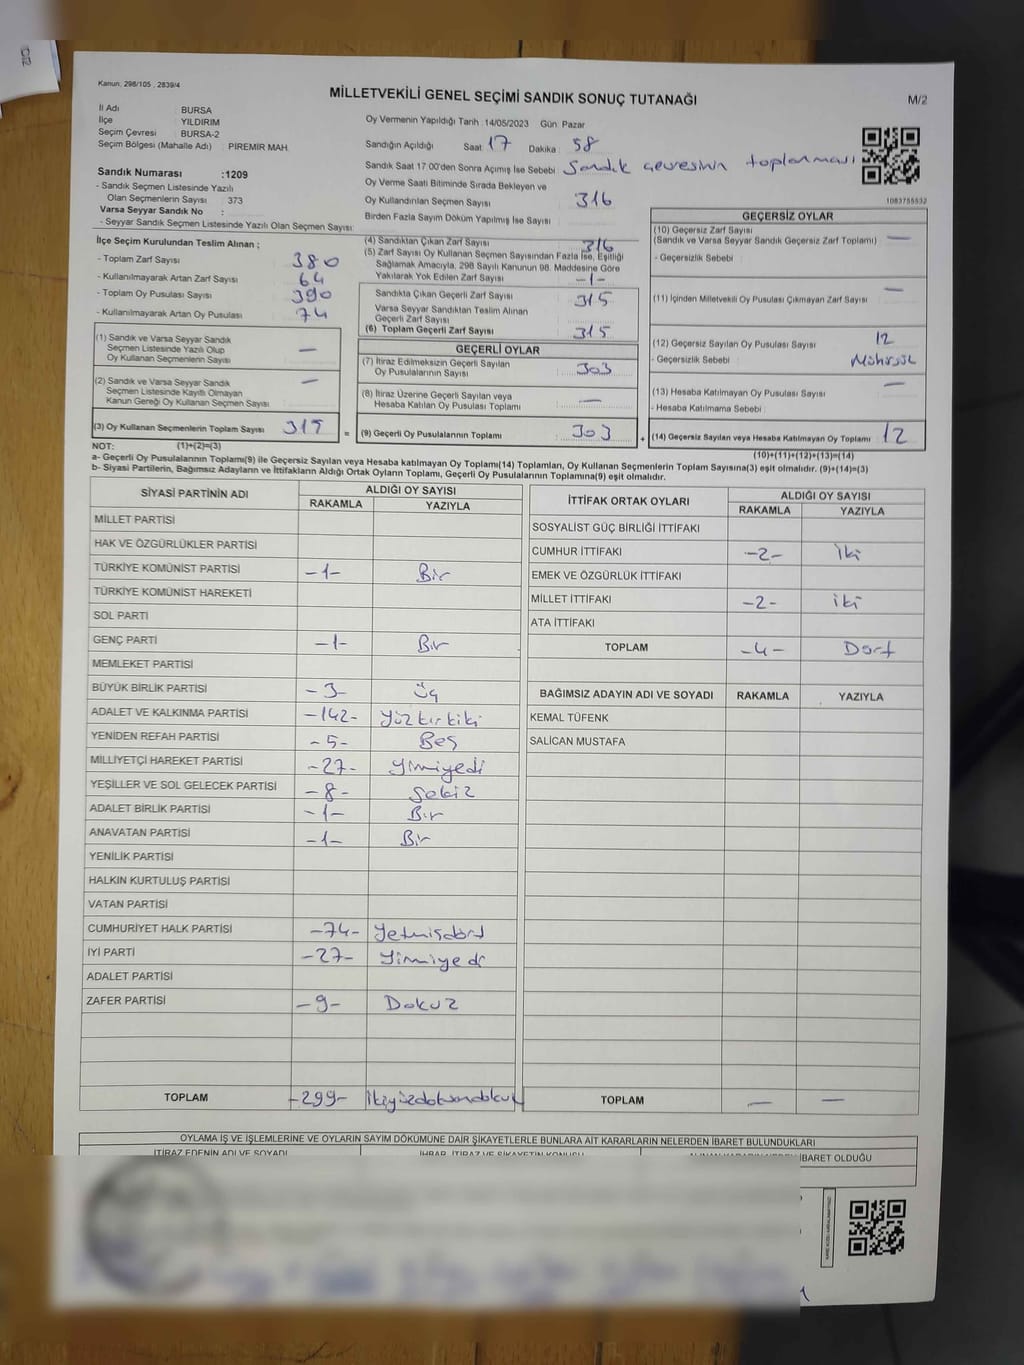 Kanun, 298/105 , 2839/4
MİLLETVEKİLİ GENEL SEÇİMİ SANDIK SONUÇ TUTANAĞI
M/2
İl Adı : BURSA
İlçe : YILDIRIM
Seçim Çevresi : BURSA-2
Seçim Bölgesi (Mahalle Adı) : PİREMİR MAH.
Oy Vermenin Yapıldığı Tarih : 14/05/2023 Gün: Pazar
Sandığın Açıldığı Saat : 17 Dakika : 58
Sandık Saat 17:00'den Sonra Açımış İse Sebebi : Sandık çevresinin toplanması
Sandık Numarası :1209
- Sandık Seçmen Listesinde Yazılı
Olan Seçmenlerin Sayısı : 373
Varsa Seyyar Sandık No :
- Seyyar Sandık Seçmen Listesinde Yazılı Olan Seçmen Sayısı:
Oy Verme Saati Bitiminde Sırada Bekleyen ve
Oy Kullandırılan Seçmen Sayısı : 316
Birden Fazla Sayım Döküm Yapılmış İse Sayısı :
1083755532
İlçe Seçim Kurulundan Teslim Alınan ;
- Toplam Zarf Sayısı : 380
- Kullanılmayarak Artan Zarf Sayısı : 64
- Toplam Oy Pusulası Sayısı : 390
- Kullanılmayarak Artan Oy Pusulası : 74
(1) Sandık ve Varsa Seyyar Sandık
Seçmen Listesinde Yazılı Olup
Oy Kullanan Seçmenlerin Sayısı : —
(2) Sandık ve Varsa Seyyar Sandık
Seçmen Listesinde Kayıtlı Olmayan
Kanun Gereği Oy Kullanan Seçmen Sayısı : —
(3) Oy Kullanan Seçmenlerin Toplam Sayısı : 315
(4) Sandıktan Çıkan Zarf Sayısı : 316
(5) Zarf Sayısı Oy Kullanan Seçmen Sayısından Fazla İse, Eşitliği
Sağlamak Amacıyla, 298 Sayılı Kanunun 98. Maddesine Göre
Yakılarak Yok Edilen Zarf Sayısı : -1-
Sandıkta Çıkan Geçerli Zarf Sayısı : 315
Varsa Seyyar Sandıktan Teslim Alınan
Geçerli Zarf Sayısı :
(6) Toplam Geçerli Zarf Sayısı : 315
GEÇERLİ OYLAR
(7) İtiraz Edilmeksizin Geçerli Sayılan
Oy Pusulalarının Sayısı : 303
(8) İtiraz Üzerine Geçerli Sayılan veya
Hesaba Katılan Oy Pusulası Toplamı : —
= (9) Geçerli Oy Pusulalarının Toplamı : 303 +
GEÇERSİZ OYLAR
(10) Geçersiz Zarf Sayısı
(Sandık ve Varsa Seyyar Sandık Geçersiz Zarf Toplamı) : —
- Geçersizlik Sebebi :
(11) İçinden Milletvekili Oy Pusulası Çıkmayan Zarf Sayısı : —
(12) Geçersiz Sayılan Oy Pusulası Sayısı : 12
- Geçersizlik Sebebi : Mühürsüz
(13) Hesaba Katılmayan Oy Pusulası Sayısı : —
- Hesaba Katılmama Sebebi :
(14) Geçersiz Sayılan veya Hesaba Katılmayan Oy Toplamı : 12
NOT: (1)+(2)=(3)
(10)+(11)+(12)+(13)=(14)
a- Geçerli Oy Pusulalarının Toplamı(9) ile Geçersiz Sayılan veya Hesaba katılmayan Oy Toplamı(14) Toplamları, Oy Kullanan Seçmenlerin Toplam Sayısına(3) eşit olmalıdır. (9)+(14)=(3)
b- Siyasi Partilerin, Bağımsız Adayların ve İttifakların Aldığı Ortak Oyların Toplamı, Geçerli Oy Pusulalarının Toplamına(9) eşit olmalıdır.
SİYASİ PARTİNİN ADI ALDIĞI OY SAYISI
RAKAMLA YAZIYLA
MİLLET PARTİSİ
HAK VE ÖZGÜRLÜKLER PARTİSİ
TÜRKİYE KOMÜNİST PARTİSİ -1- Bir
TÜRKİYE KOMÜNİST HAREKETİ
SOL PARTİ
GENÇ PARTİ -1- Bir
MEMLEKET PARTİSİ
BÜYÜK BİRLİK PARTİSİ -3- Üç
ADALET VE KALKINMA PARTİSİ -142- Yüzkırkiki
YENİDEN REFAH PARTİSİ -5- Beş
MİLLİYETÇİ HAREKET PARTİSİ -27- Yirmiyedi
YEŞİLLER VE SOL GELECEK PARTİSİ -8- Sekiz
ADALET BİRLİK PARTİSİ -1- Bir
ANAVATAN PARTİSİ -1- Bir
YENİLİK PARTİSİ
HALKIN KURTULUŞ PARTİSİ
VATAN PARTİSİ
CUMHURİYET HALK PARTİSİ -74- Yetmişdört
İYİ PARTİ -27- Yirmiyedi
ADALET PARTİSİ
ZAFER PARTİSİ -9- Dokuz
TOPLAM -299- İkiyüzdoksandokuz
İTTİFAK ORTAK OYLARI ALDIĞI OY SAYISI
RAKAMLA YAZIYLA
SOSYALİST GÜÇ BİRLİĞİ İTTİFAKI
CUMHUR İTTİFAKI -2- iki
EMEK VE ÖZGÜRLÜK İTTİFAKI
MİLLET İTTİFAKI -2- iki
ATA İTTİFAKI
TOPLAM -4- Dört
BAĞIMSIZ ADAYIN ADI VE SOYADI RAKAMLA YAZIYLA
KEMAL TÜFENK
SALİCAN MUSTAFA
TOPLAM — —
OYLAMA İŞ VE İŞLEMLERİNE VE OYLARIN SAYIM DÖKÜMÜNE DAİR ŞİKAYETLERLE BUNLARA AİT KARARLARIN NELERDEN İBARET BULUNDUKLARI
İTİRAZ EDENİN ADI VE SOYADI İHBAR, İTİRAZ VE ŞİKAYETİN KONUSU İBARET OLDUĞU